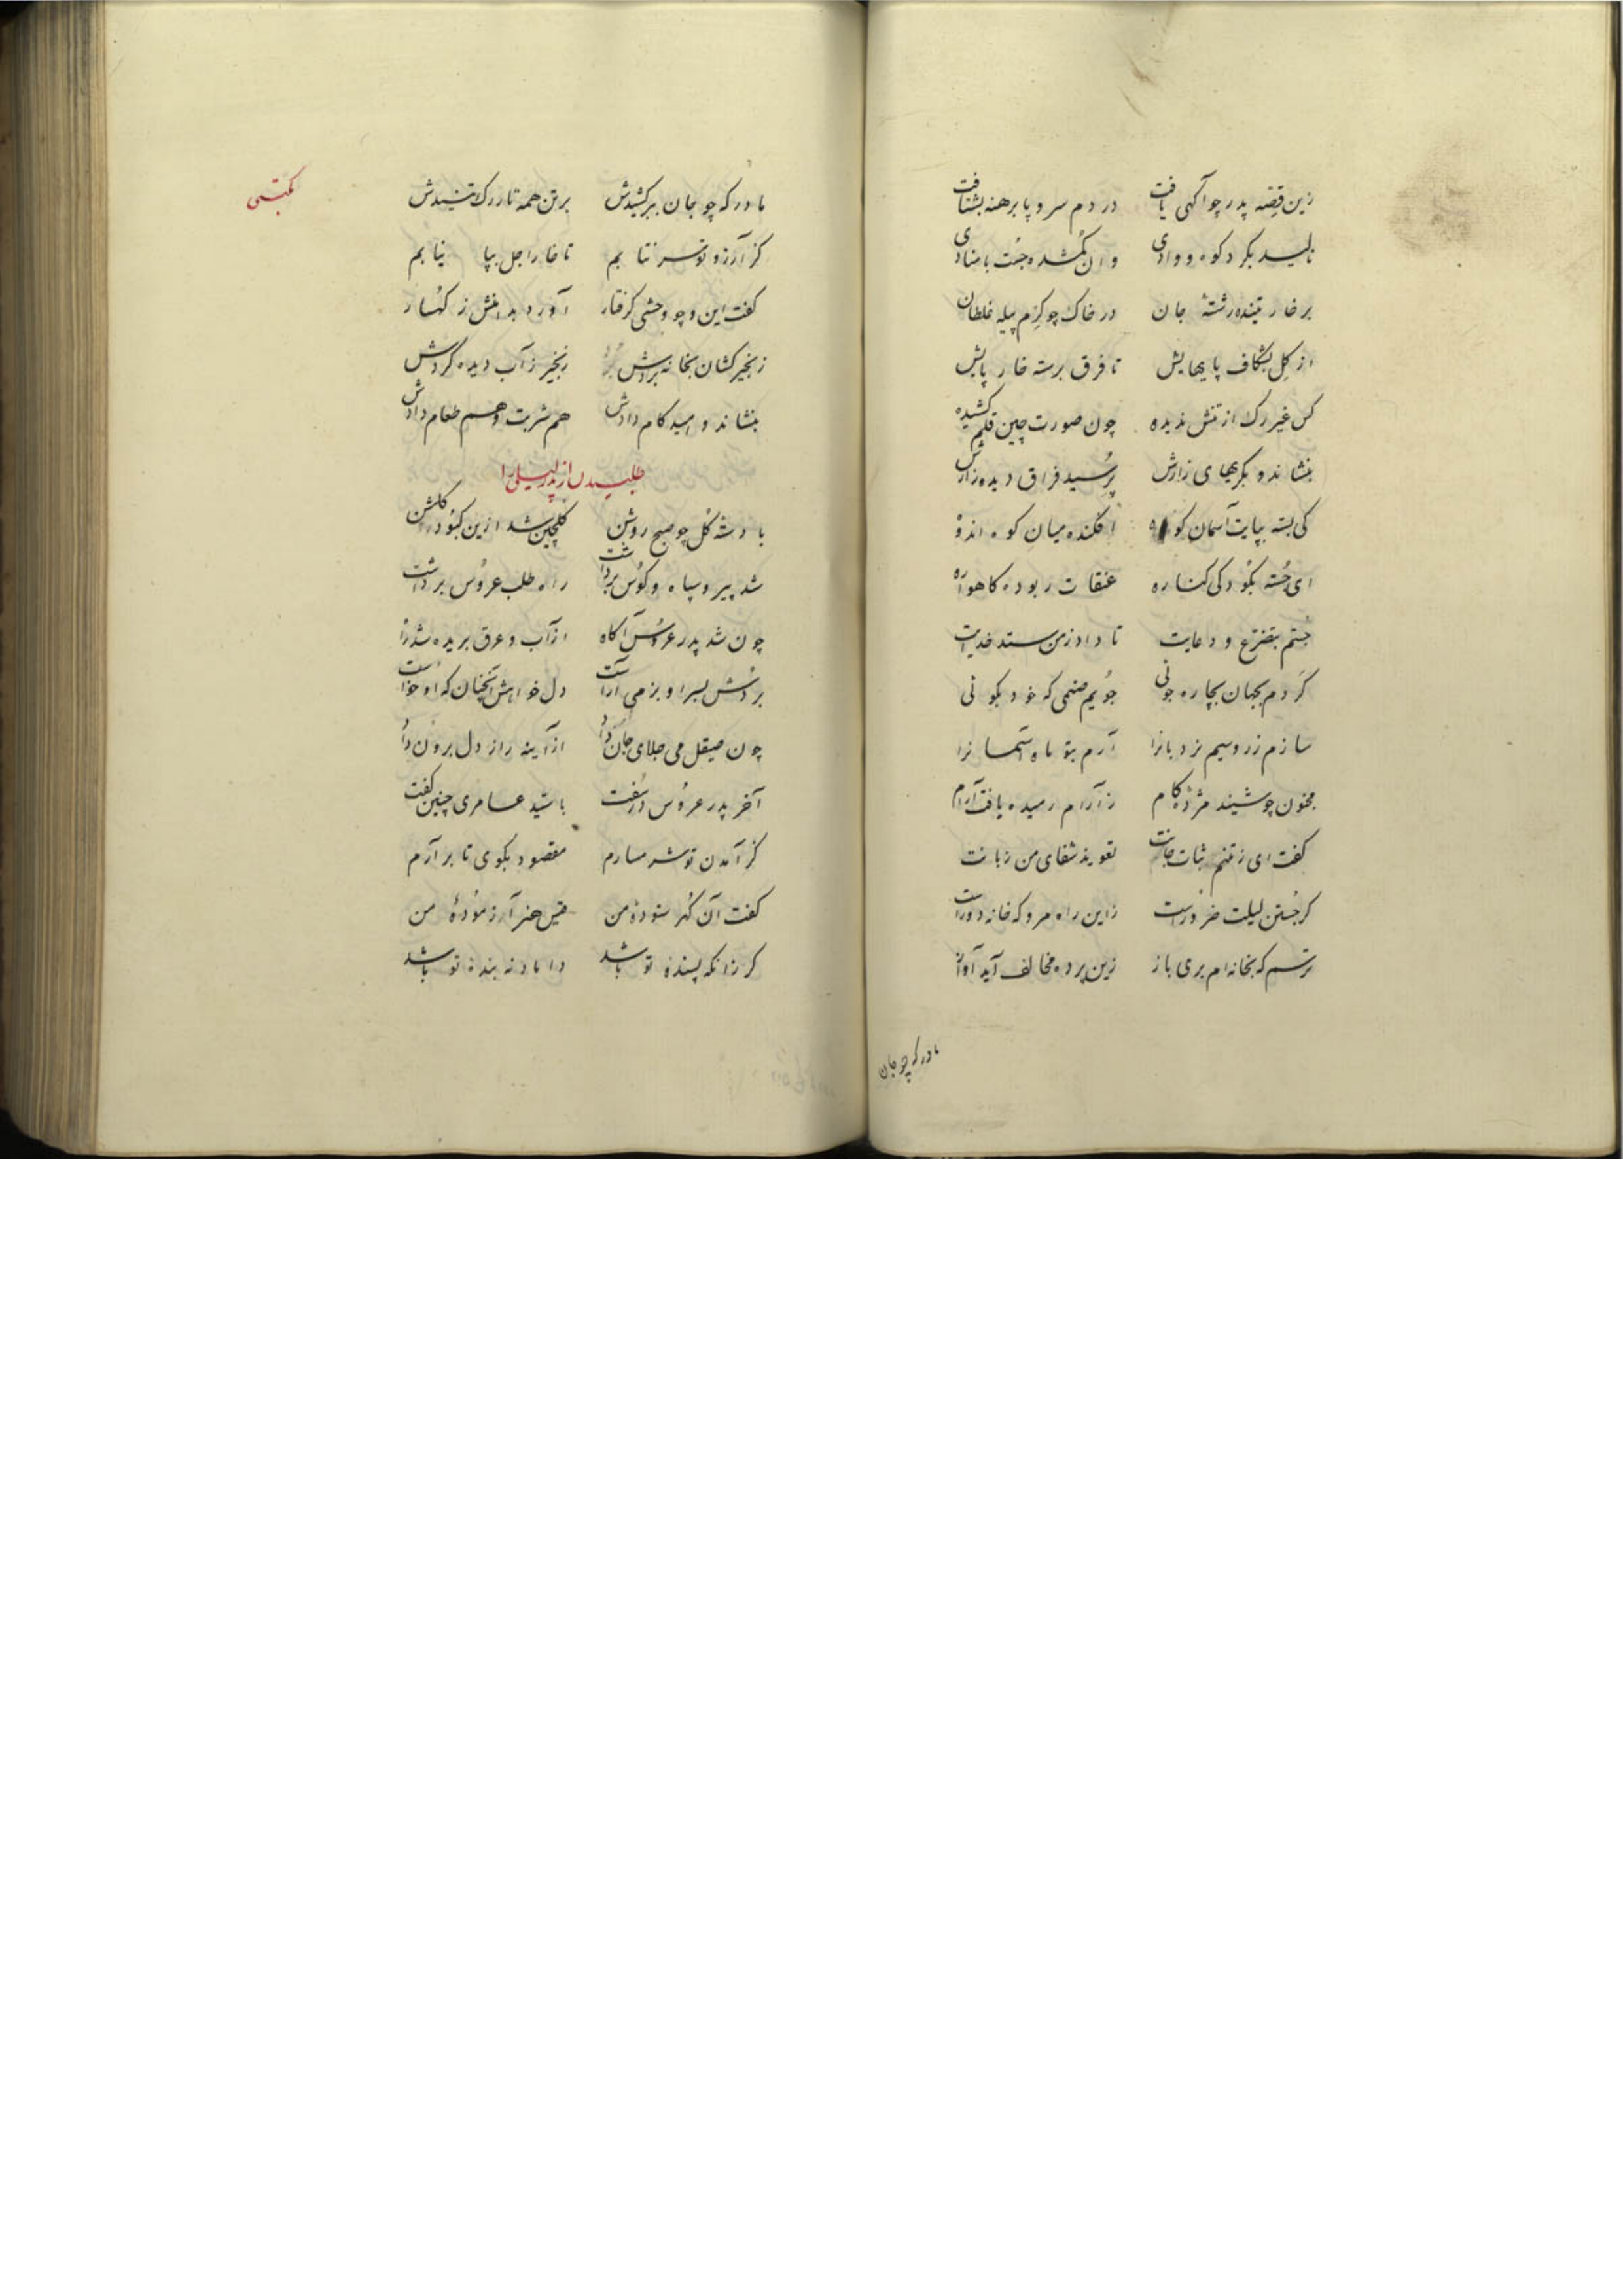 زین قصّه پدر چو آکهی یافت در دم سر و پا برهنه بشتافت
نالید بکرد کوه و وادی وان کمشده جُست با منادی
بر خار تنیده رشتهٔ جان در خاک چو کرم پیله غلطان
از کل بشکاف پایهایش تا فرق برسته خار پایش
کس غیر رک از تنش ندیده چون صورت چین قلم کشیده
بنشاند و بکریهای زارش پرُسید فراق دیده زارش
کی بسته بپایت آسمان کوه افکنده میان کوه اندوه
ای جُسته بکودکی کناره عنقات ربوده کاهواره
جستم بتضرّع و دعایت تا داد ز من ستد خدایت
کَردم بجهان بچاره جوئی جُویم صنمی که خود بکوئی
سازم زر و سیم نردبانرا آرم بتو ماه آسمانرا
مجنون چو شنید مژدهٔ کام ز آرام رمیده یافت آرام
کفت ای ز تنم ثبات جانت تعویذ شفای من زبانت
کر جُستن لیلیت ضرُورست زاین راه مرو که خانه دُورست
ترسم که بخانه‌ام بری باز زین پرده مخالف آید آواز
مادر که چو جان
مکتبی
مادر که چو جان ببر کشیدش بر تن همه تار رک تنیدش
کز آرزو تو سر نتابم تا خار اجل بپا نیابم
کفت این و چو وحشی کرفتار آورد بدامنش ز کهُسار
زنجیر کشان بخانه بردش زنجیر ز آب دیده کردش
بنشاند و امید کام دادش هم شربت و هم طعام دادش
طلبیدن از پدر لیلی را
با دسته کُل چو صبح روشن کلچین شد ازین کبُود کلشن
شد پیر و سپاه و کوُس برداشت راه طلب عروُس برداشت
چون شد پدر عروُس آکاه از آب و عرق بریده شد راه
برُدش بسرا و بزمی آراست دل خواهش آنچنان که او خواست
چون صیقل می جلای جان داد از آینه راز دل برون داد
آخر پدر عروُس دُر سُفت با سیّد عامری چنین کفت
کز آمدن تو شرمسارم مقصود بکوی تا بر آرم
کفت آن کهُر ستودهٔ من قیس هنر آزموُدهٔ من
کر زانکه پسندهٔ تو باشد داماد نه بندهٔ تو باشد